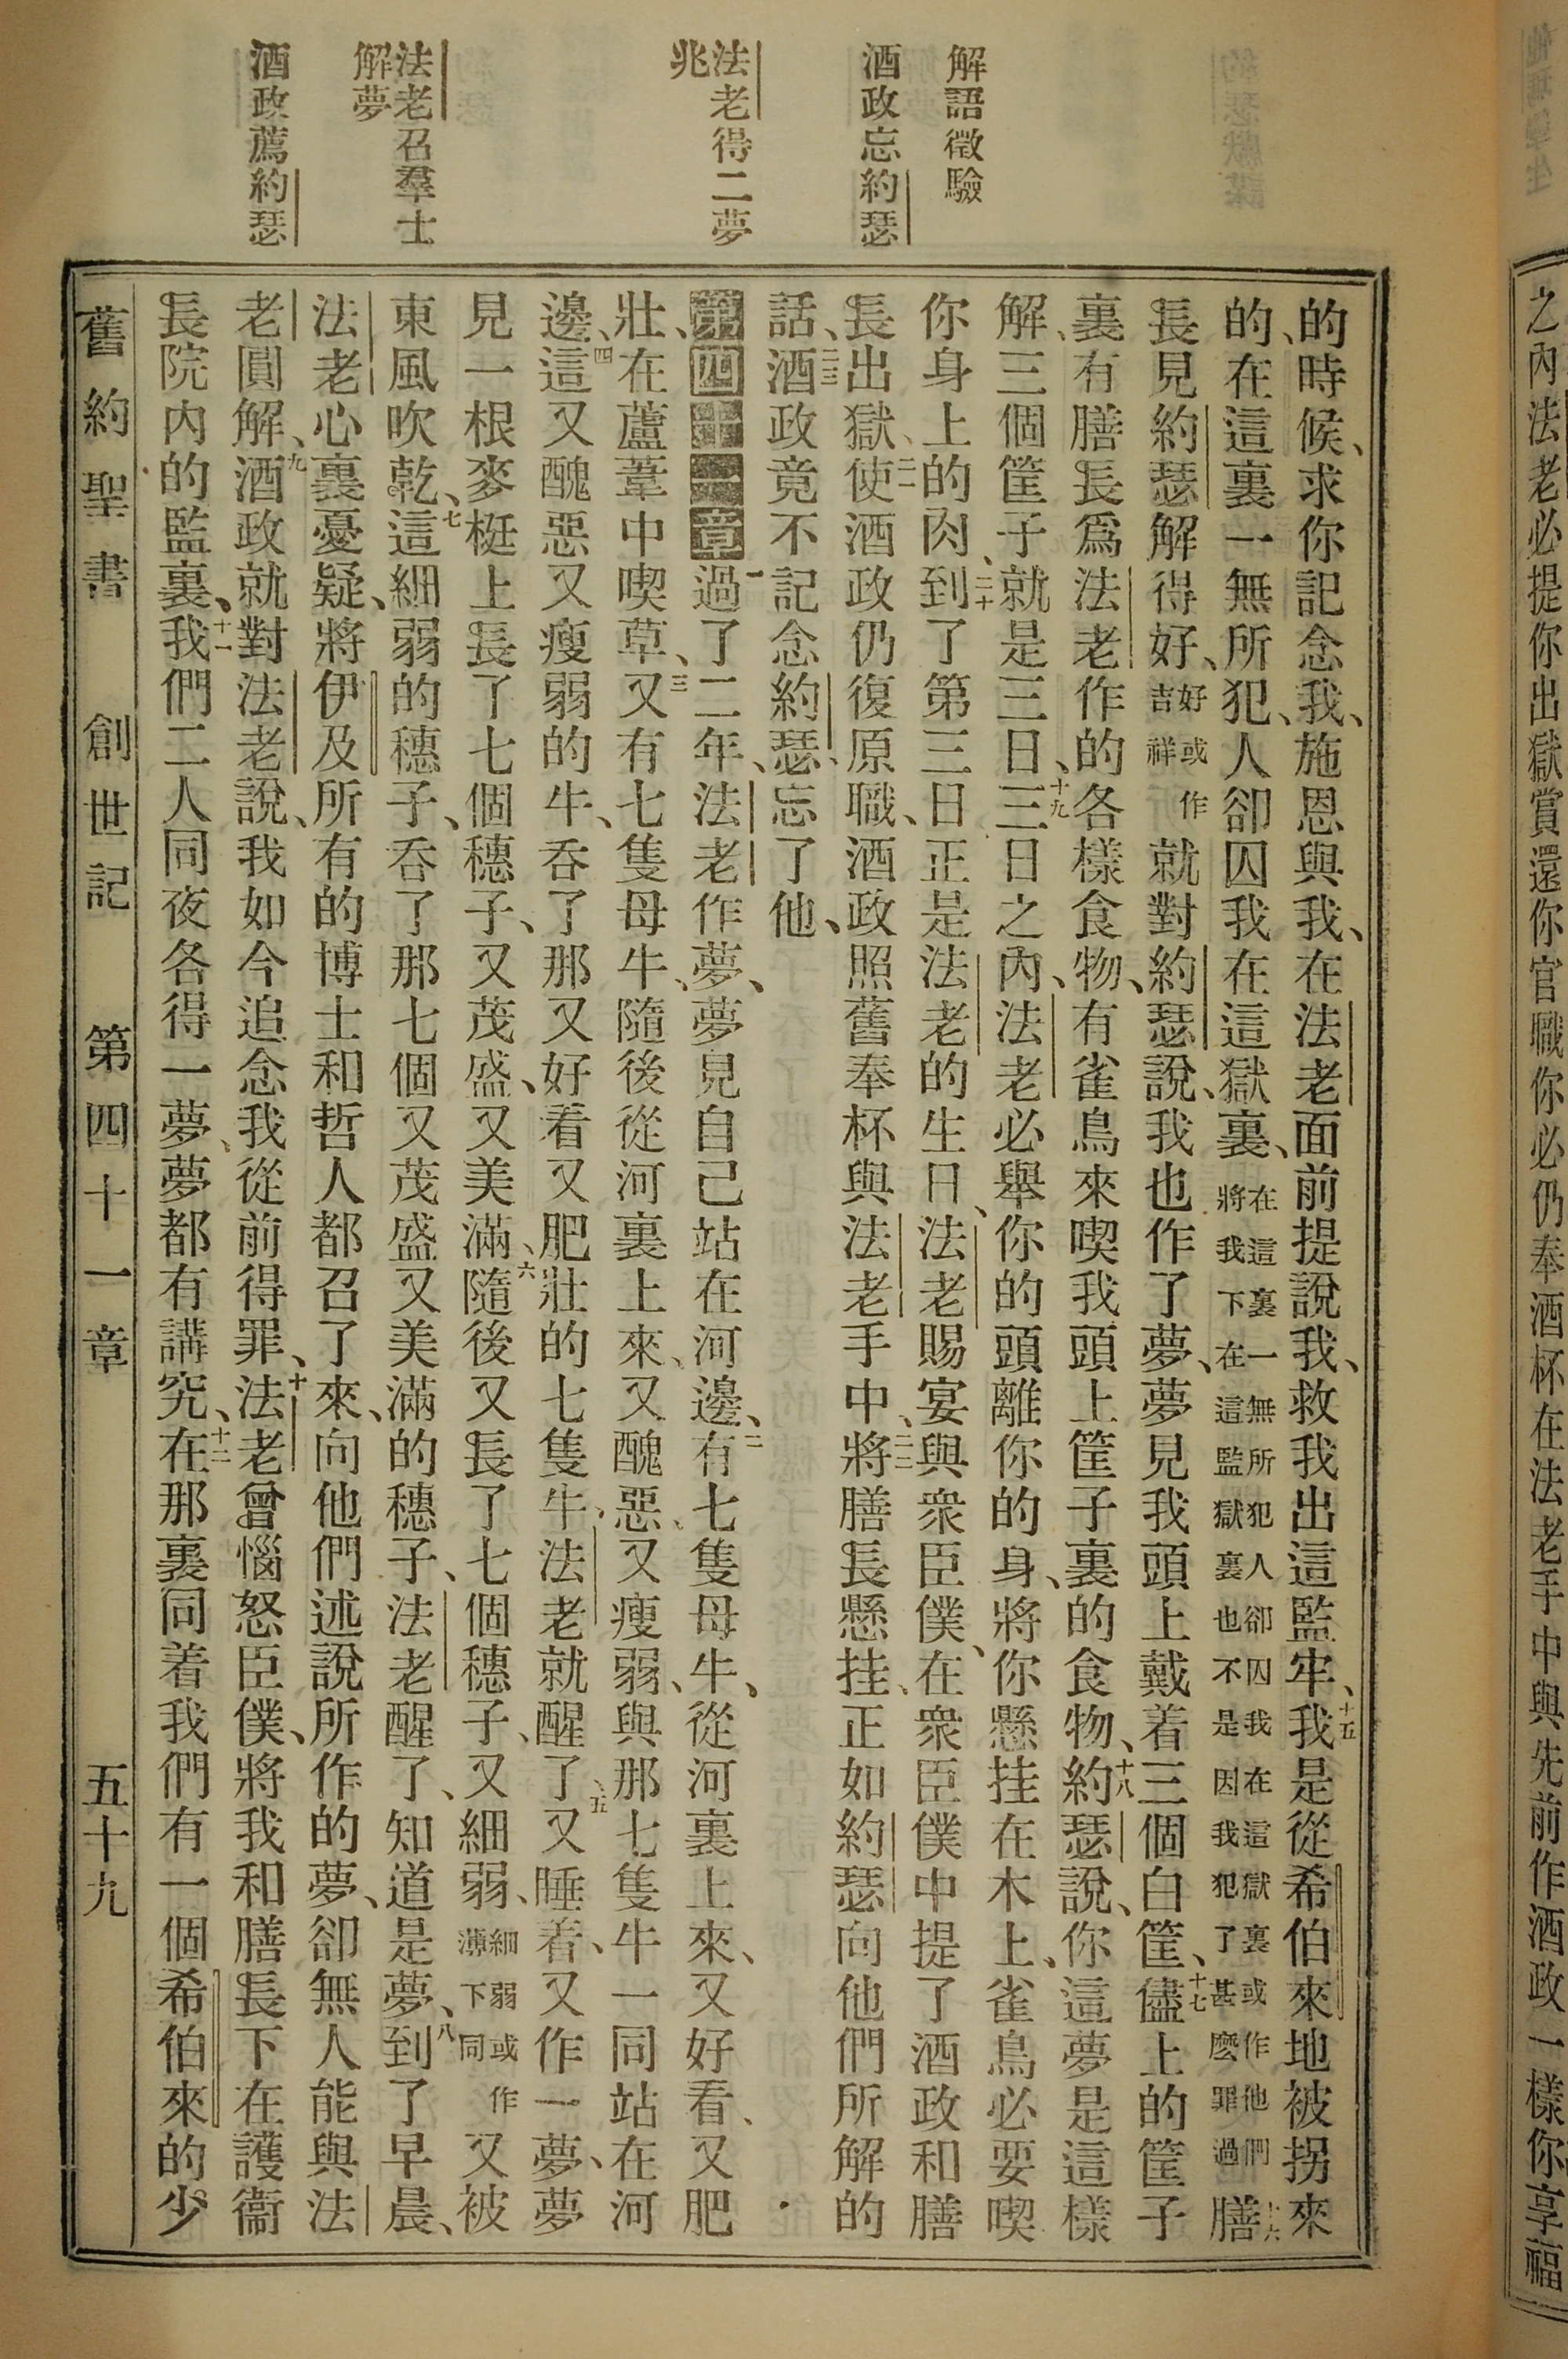 之內法老必提你出獄賞還你官職你必仍奉酒杯在法老手中與先前作酒政一樣你享福
解語徵驗
酒政忘約瑟
法老得二夢
兆
法老召羣士
解夢
酒政薦約瑟
的時候、求你記念我、施恩與我、在法老面前提說我、救我出這監牢、十五我是從希伯來地被拐來
的、在這裏一無所犯、人卻囚我在這獄裏、在這裏一無所犯人卻囚我在這獄裏或作他們將我下在這監獄裏也不是因我犯了甚麽罪過十六膳
長見約瑟解得好、好或作吉祥就對約瑟說、我也作了夢、夢見我頭上戴着三個白筐、十七儘上的筐子
裏有膳長爲法老作的各樣食物、有雀鳥來喫我頭上筐子裏的食物、十八約瑟說、你這夢是這樣
解、三個筐子就是三日、十九三日之內、法老必舉你的頭離你的身、將你懸挂在木上、雀鳥必要喫
你身上的肉、二十到了第三日正是法老的生日、法老賜宴與衆臣僕、在衆臣僕中提了酒政和膳
長出獄、二一使酒政仍復原職、酒政照舊奉杯與法老手中、二二將膳長懸挂、正如約瑟向他們所解的
話、二三酒政竟不記念約瑟、忘了他、
第四十一章一過了二年、法老作夢、夢見自己站在河邊、二有七隻母牛、從河裏上來、又好看、又肥
壯、在蘆葦中喫草、三又有七隻母牛、隨後從河裏上來、又醜惡、又瘦弱、與那七隻牛一同站在河
邊、四這又醜惡又瘦弱的牛、吞了那又好看又肥壯的七隻牛、法老就醒了、五又睡着、又作一夢、夢
見一根麥梃上長了七個穗子、又茂盛、又美滿、六隨後又長了七個穗子、又細弱、細弱或作薄下同又被
東風吹乾、七這細弱的穗子、吞了那七個又茂盛又美滿的穗子、法老醒了、知道是夢、八到了早晨、
法老心裏憂疑、將伊及所有的博士和哲人都召了來、向他們述說所作的夢、卻無人能與法
老圓解、九酒政就對法老說、我如今追念我從前得罪、十法老曾惱怒臣僕、將我和膳長下在護衞
長院內的監裏、十一我們二人同夜各得一夢、夢都有講究、十二在那裏同着我們有一個希伯來的少
舊約聖書 創世記 第四十一章 五十九